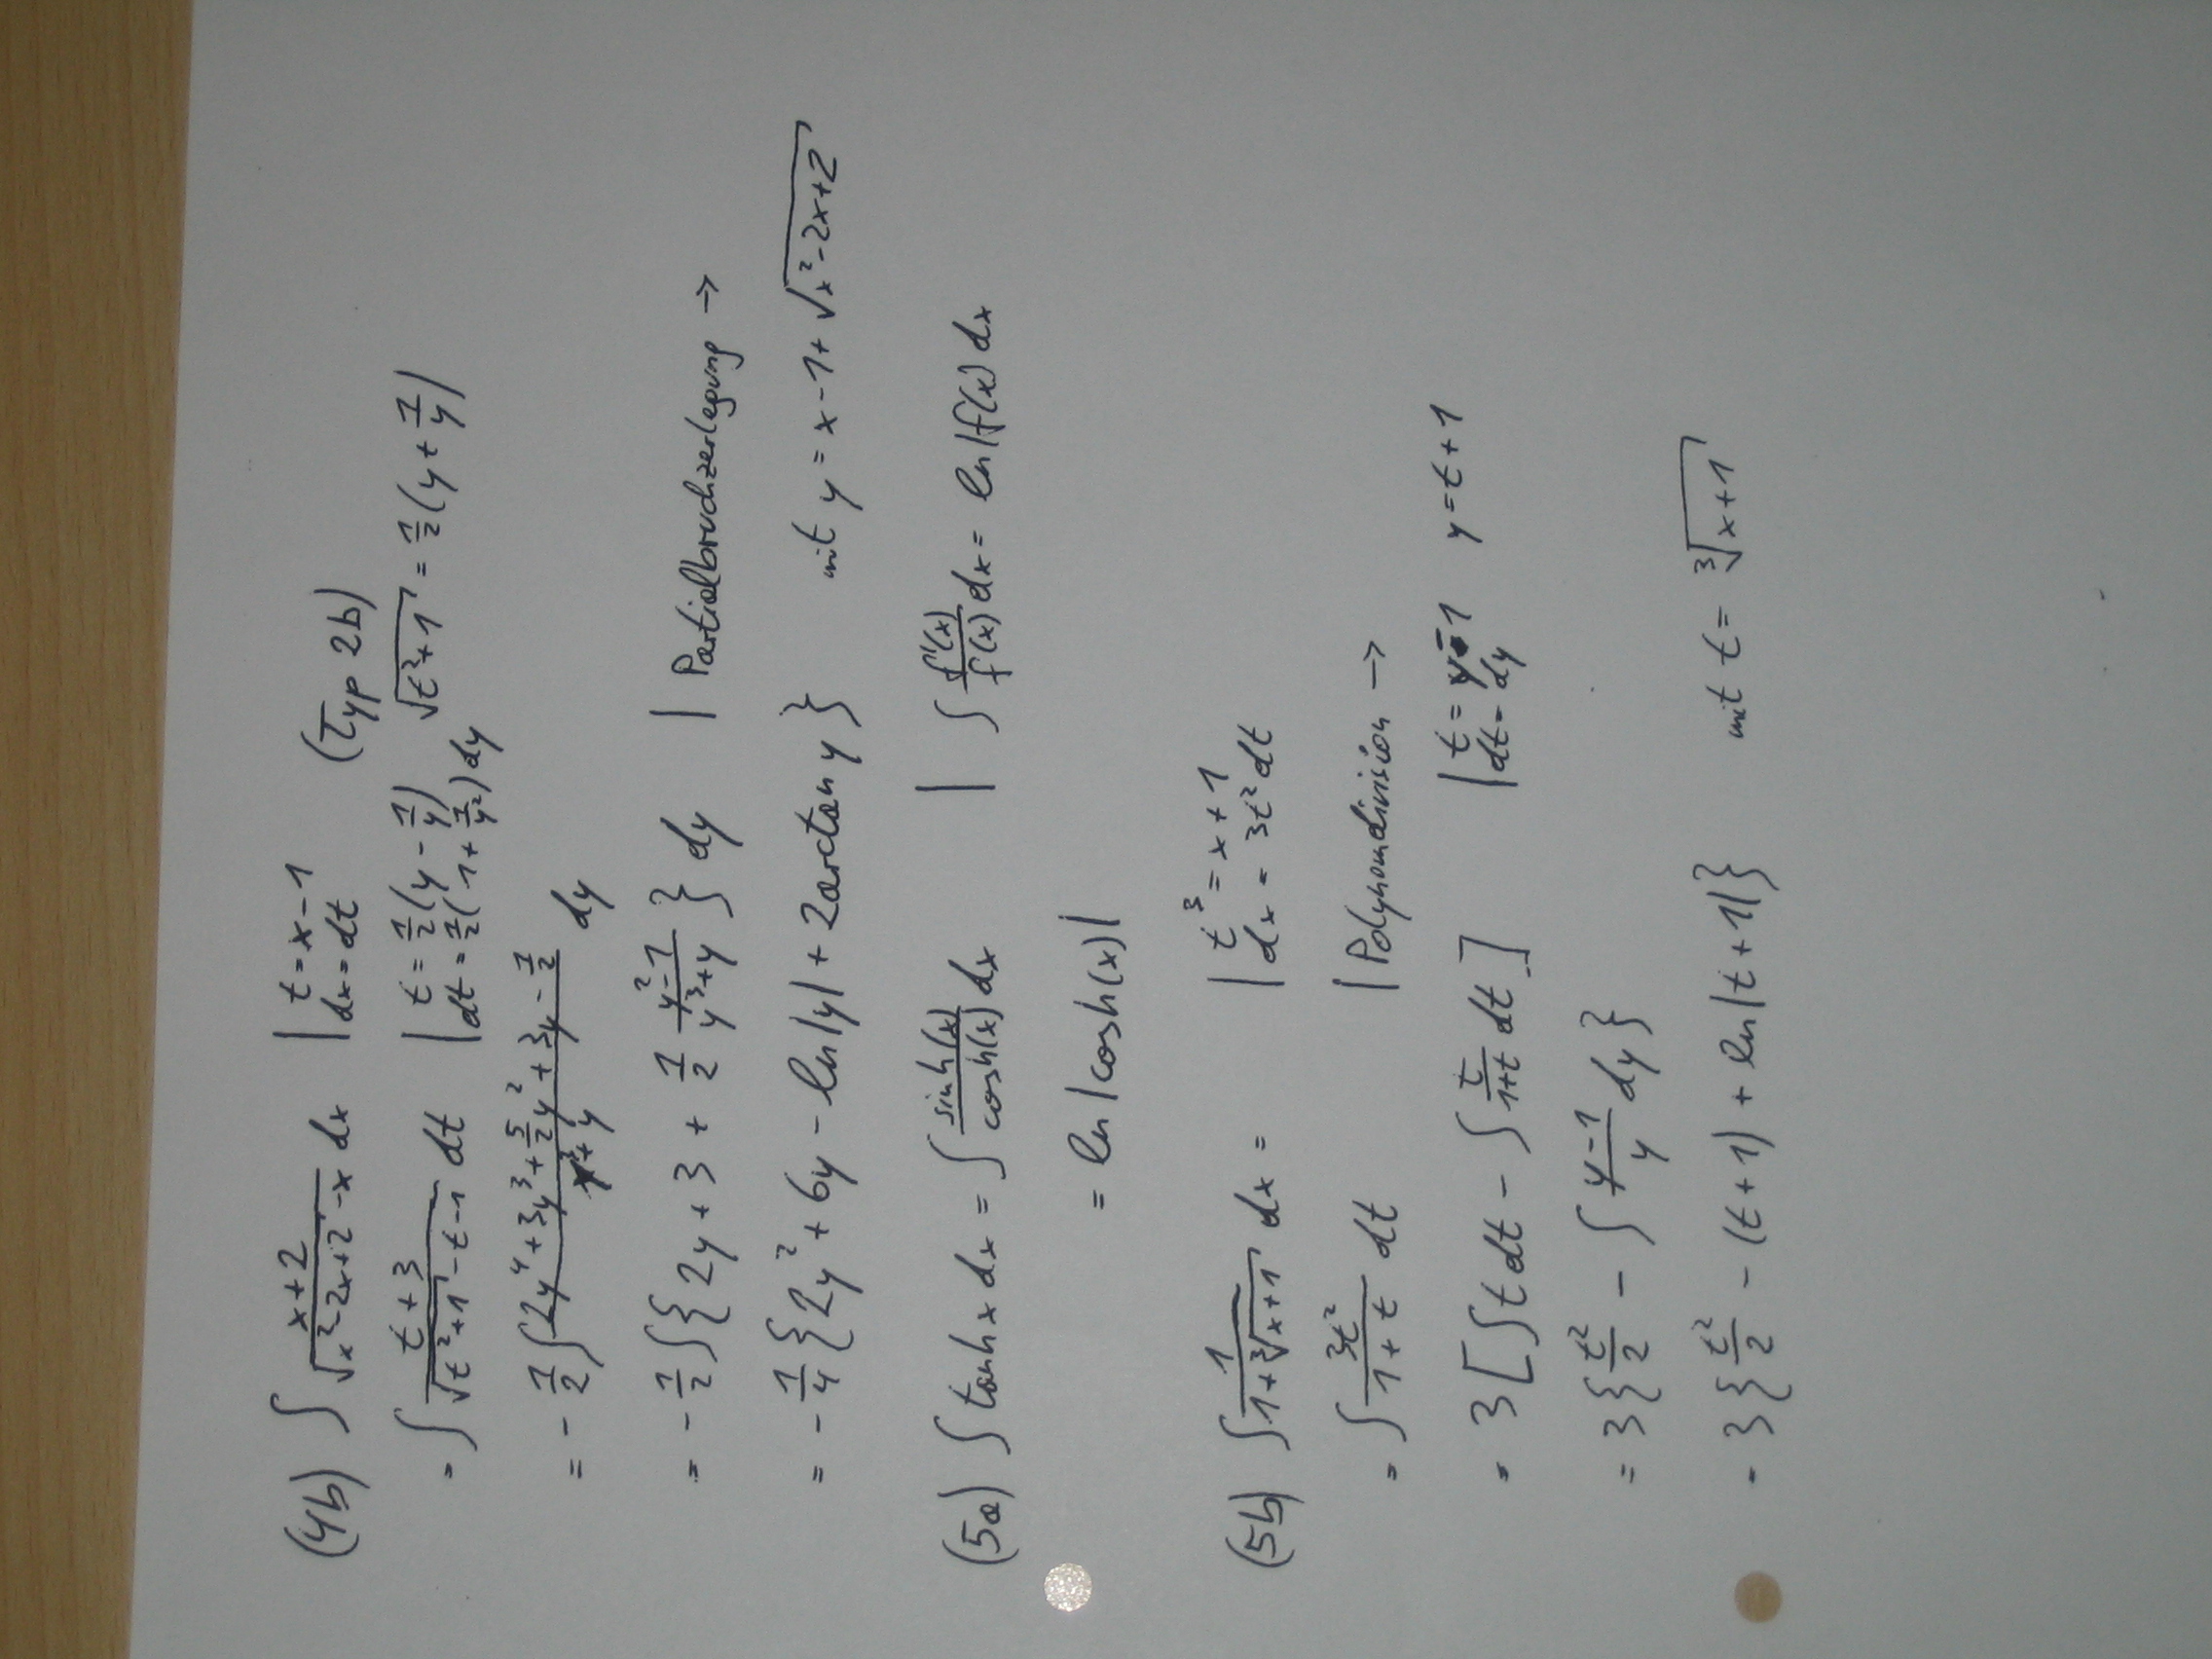 (4b) ∫ (x+2)/(√(x²-2x+2) - x) dx | t = x-1 (Typ 2b)
dx = dt
= ∫ (t+3)/(√(t²+1) - t - 1) dt | t = 1/2 (y - 1/y) √(t²+1) = 1/2 (y + 1/y)
dt = 1/2 (1 + 1/y²) dy
= - 1/2 ∫ (2y⁴ + 3y³ + 5/2 y² + 3y - 1/2)/(y³ + y) dy
= - 1/2 ∫ { 2y + 3 + 1/2 (y²-1)/(y³+y) } dy | Partialbruchzerlegung →
= - 1/4 { 2y² + 6y - ln|y| + 2arctan y } mit y = x-1+ √(x²-2x+2)
(5a) ∫ tanh x dx = ∫ sinh(x)/cosh(x) dx | ∫ f'(x)/f(x) dx = ln|f(x) dx
= ln|cosh(x)|
(5b) ∫ 1/(1+³√(x+1)) dx = | t³ = x+1
dx = 3t² dt
= ∫ 3t²/(1+t) dt | Polynomdivision →
= 3 [ ∫ t dt - ∫ t/(1+t) dt ] | t = y-1 y = t+1
dt = dy
= 3 { t²/2 - ∫ (y-1)/y dy }
= 3 { t²/2 - (t+1) + ln|t+1| } mit t = ³√(x+1)